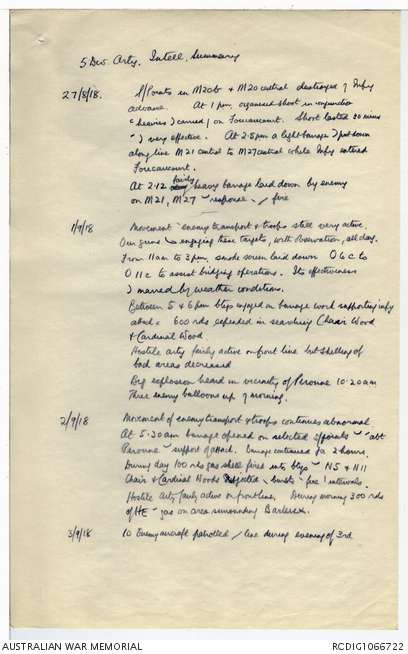 5 Div. Arty. Intell. Summary
27/8/18. S/Points in M20b & M20 central destroyed Infy
advance. At 1 pm. organised shoot in conjunction
heavies carried on Foucaucourt. Shoot lasted 30 mins
very effective. At 2.5pm a light barrage put down
along line M21 central to M27 central while Infy entered
Foucaucourt.
At 2.12 fairly heavy barrage laid down by enemy
on M21, M27 response fire
1/9/18 Movement enemy transport & troops still very active.
Our guns engaging these targets, with observation, all day.
From 11am to 3pm, smoke screen laid down O6c to
O11c to assist bridging operations. Its effectiveness
marred by weather conditions.
Between 5 & 6pm btys engaged on barrage work supporting infy
attack & 600 rds expended in searching Chair Wood
& Cardinal Wood
Hostile arty fairly active on front line but shelling of
back areas decreased
Big explosion heard in vicinity of Peronne 10.20am
Three enemy balloons up morning.
2/9/18 Movement of enemy transport & troops continues abnormal
At 5.30am barrage opened on selected s/points
Peronne support of attack. Barrage continued for 2 hours.
During day 100 rds gas shell fired into btys N5 & N11
Chair & Cardinal Woods subjected bursts fire intervals.
Hostile Arty fairly active on front line. During morning 300 rds
of HE gas on area surrounding Barleux.
3/9/18 10 Enemy aircraft patrolled line during evening of 3rd
AUSTRALIAN WAR MEMORIAL
RCDIG1066722